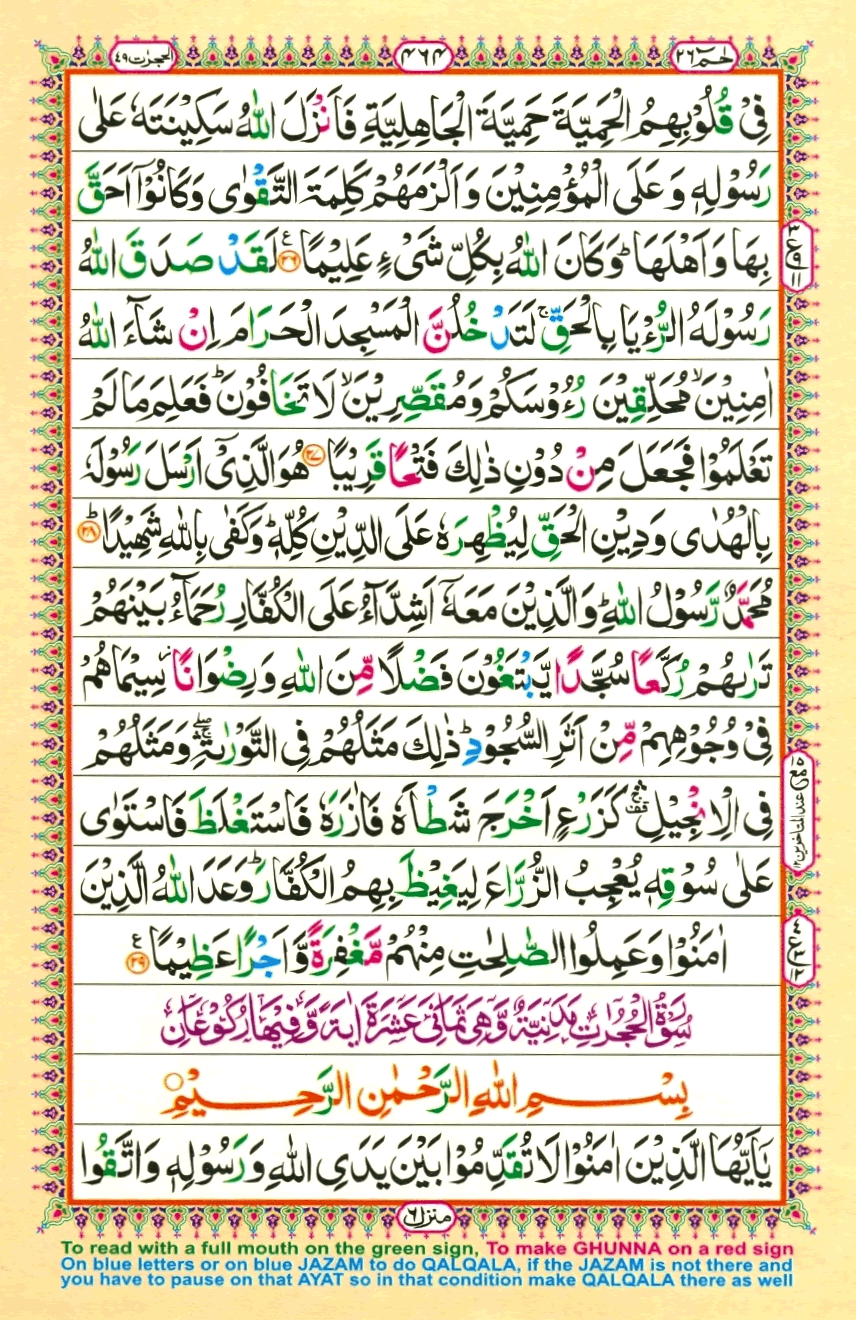 حٰمٓ ٢٦
٤٦٤
الحجرٰت ٤٩
فِیْ قُلُوْبِهِمُ الْحَمِیَّةَ حَمِیَّةَ الْجَاهِلِیَّةِ فَاَنْزَلَ اللّٰهُ سَكِیْنَتَهٗ عَلٰی
رَسُوْلِهٖ وَ عَلَی الْمُؤْمِنِیْنَ وَ اَلْزَمَهُمْ كَلِمَةَ التَّقْوٰی وَ كَانُوْۤا اَحَقَّ
بِهَا وَ اَهْلَهَا ؕ وَ كَانَ اللّٰهُ بِكُلِّ شَیْءٍ عَلِیْمًا ﴿۲۶﴾ع لَقَدْ صَدَقَ اللّٰهُ
٣
ع
٩
١١
رَسُوْلَهُ الرُّءْیَا بِالْحَقِّ ۚ لَتَدْخُلُنَّ الْمَسْجِدَ الْحَرَامَ اِنْ شَآءَ اللّٰهُ
اٰمِنِیْنَ ۙ مُحَلِّقِیْنَ رُءُوْسَكُمْ وَ مُقَصِّرِیْنَ ۙ لَا تَخَافُوْنَ ؕ فَعَلِمَ مَا لَمْ
تَعْلَمُوْا فَجَعَلَ مِنْ دُوْنِ ذٰلِكَ فَتْحًا قَرِیْبًا ﴿۲۷﴾ هُوَ الَّذِیْۤ اَرْسَلَ رَسُوْلَهٗ
بِالْهُدٰی وَ دِیْنِ الْحَقِّ لِیُظْهِرَهٗ عَلَی الدِّیْنِ كُلِّهٖ ؕ وَ كَفٰی بِاللّٰهِ شَهِیْدًا ﴿۲۸﴾ؕ
مُحَمَّدٌ رَّسُوْلُ اللّٰهِ ؕ وَ الَّذِیْنَ مَعَهٗۤ اَشِدَّآءُ عَلَی الْكُفَّارِ رُحَمَآءُ بَیْنَهُمْ
تَرٰىهُمْ رُكَّعًا سُجَّدًا یَّبْتَغُوْنَ فَضْلًا مِّنَ اللّٰهِ وَ رِضْوَانًا ؗ سِیْمَاهُمْ
فِیْ وُجُوْهِهِمْ مِّنْ اَثَرِ السُّجُوْدِ ؕ ذٰلِكَ مَثَلُهُمْ فِی التَّوْرٰىةِ ۛۖۚ وَ مَثَلُهُمْ
فِی الْاِنْجِیْلِ ۛ۫ۚ كَزَرْعٍ اَخْرَجَ شَطْـَٔهٗ فَاٰزَرَهٗ فَاسْتَغْلَظَ فَاسْتَوٰی
مع عند المتاخرین ١٢
عَلٰی سُوْقِهٖ یُعْجِبُ الزُّرَّاعَ لِیَغِیْظَ بِهِمُ الْكُفَّارَ ؕ وَعَدَ اللّٰهُ الَّذِیْنَ
اٰمَنُوْا وَ عَمِلُوا الصّٰلِحٰتِ مِنْهُمْ مَّغْفِرَةً وَّ اَجْرًا عَظِیْمًا ﴿۲۹﴾ع
سُوْرَةُ الْحُجُرٰتِ مَدَنِیَّةٌ وَّ هِیَ ثَمَانِیَ عَشْرَةَ اٰیَةً وَّ فِیْهَا رُكُوْعَانِ
بِسْمِ اللّٰهِ الرَّحْمٰنِ الرَّحِیْمِ
یٰۤاَیُّهَا الَّذِیْنَ اٰمَنُوْا لَا تُقَدِّمُوْا بَیْنَ یَدَیِ اللّٰهِ وَ رَسُوْلِهٖ وَ اتَّقُوا
منزل ٦
To read with a full mouth on the green sign, To make GHUNNA on a red sign
On blue letters or on blue JAZAM to do QALQALA, if the JAZAM is not there and
you have to pause on that AYAT so in that condition make QALQALA there as well